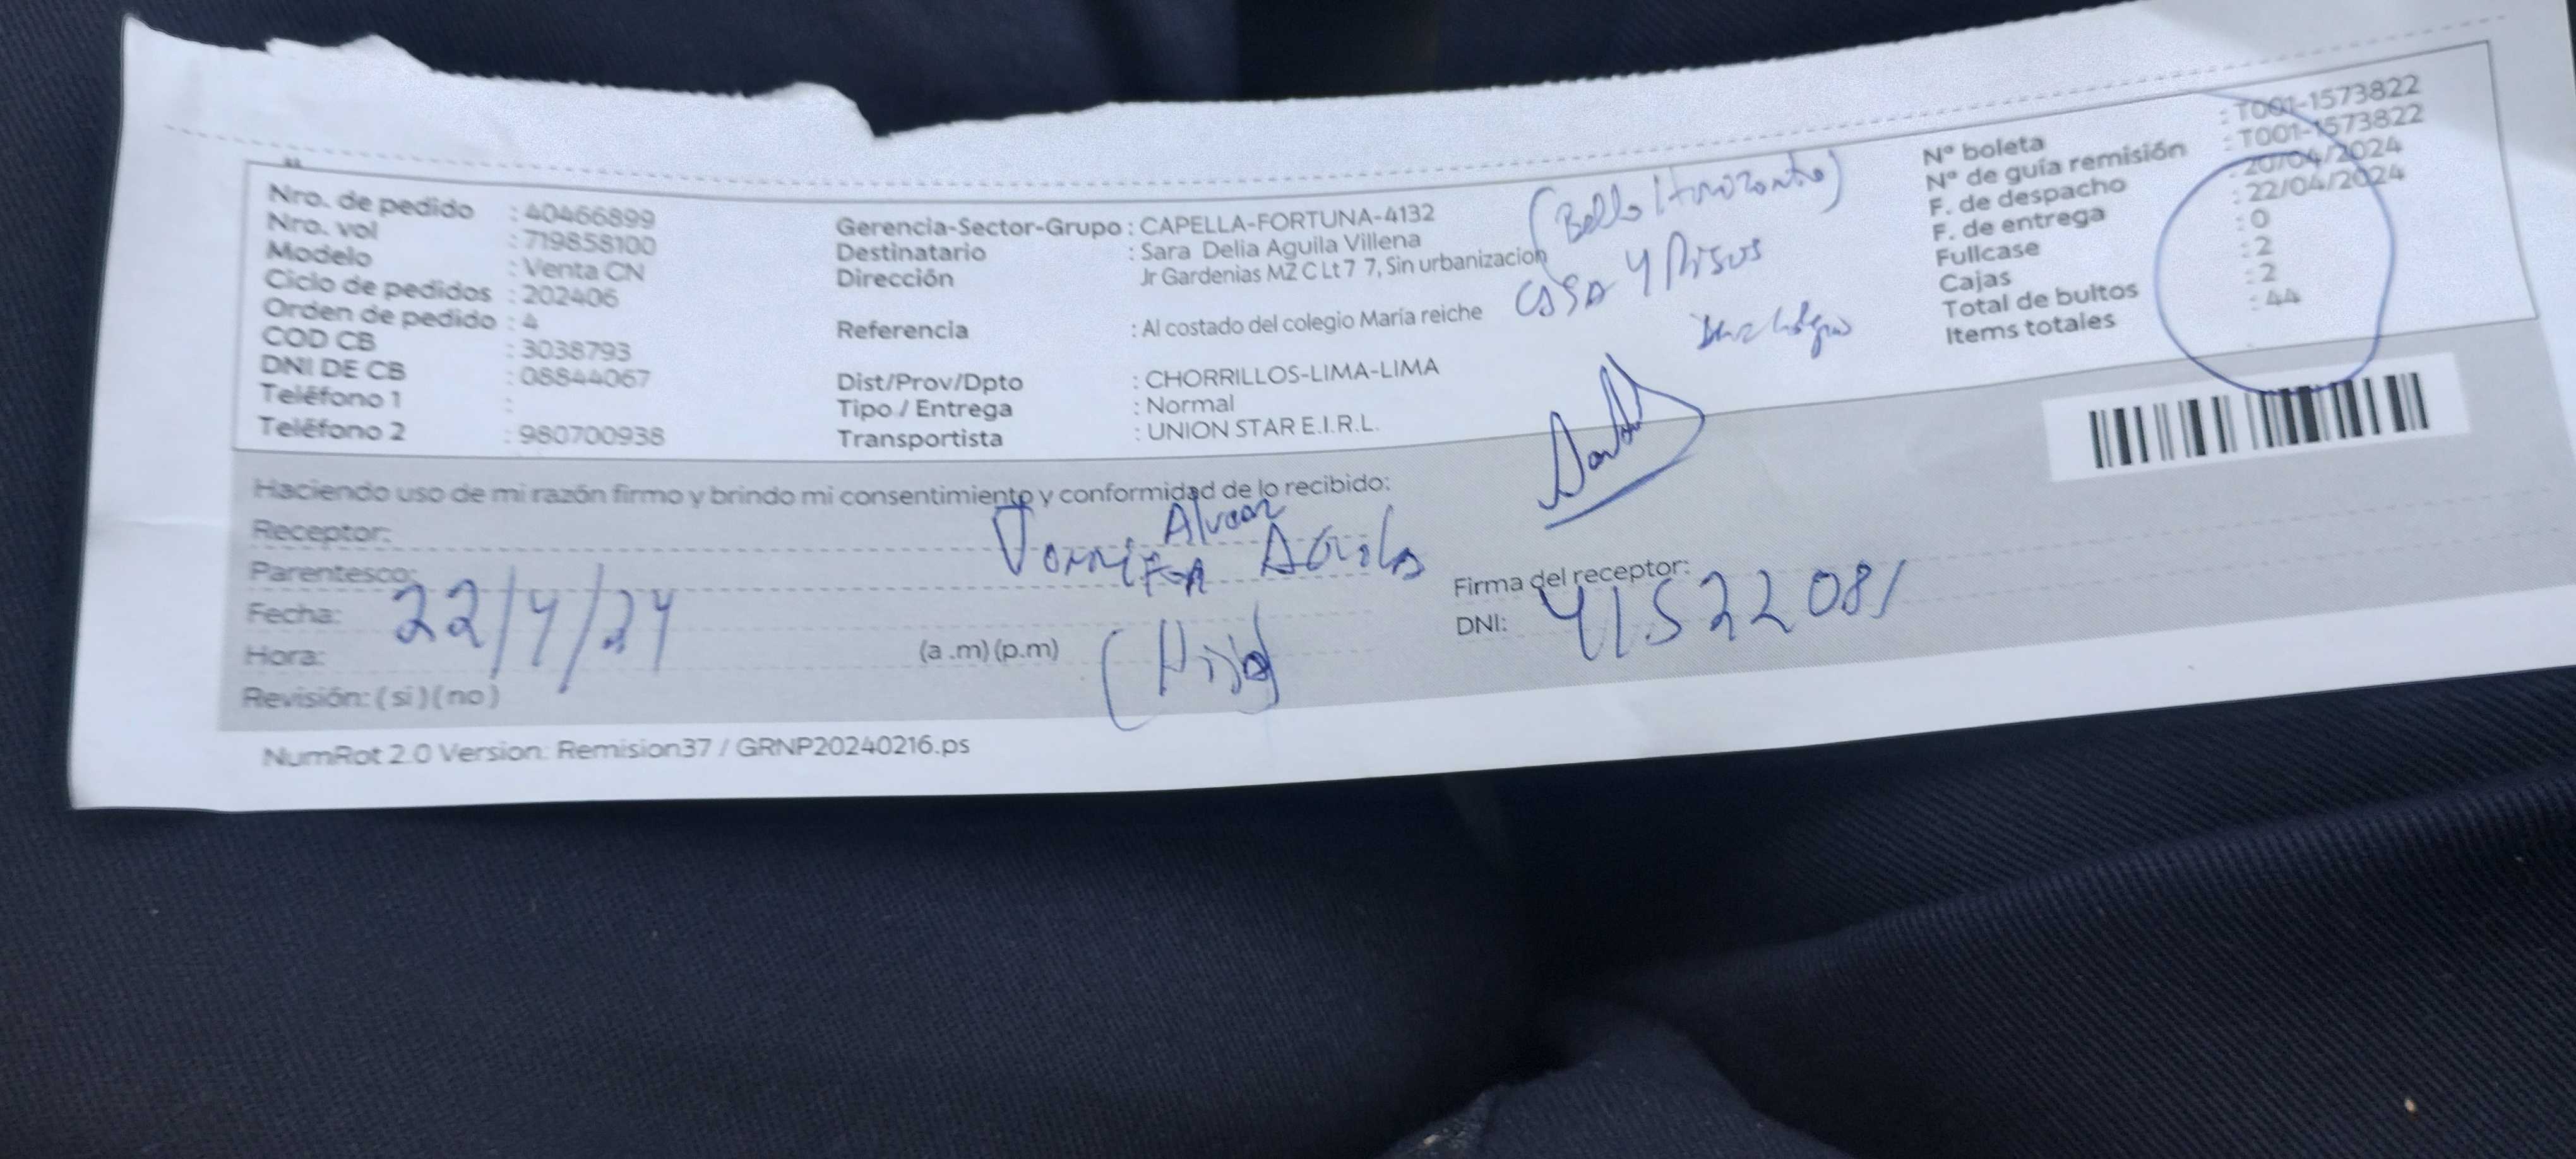 Nro. de pedido : 40466899
Nro. vol : 719858100
Modelo : Venta CN
Ciclo de pedidos : 202406
Orden de pedido : 4
COD CB : 3038793
DNI DE CB : 08844067
Teléfono 1 :
Teléfono 2 : 980700938
Gerencia-Sector-Grupo : CAPELLA-FORTUNA-4132
Destinatario : Sara Delia Aguila Villena
Dirección Jr Gardenias MZ C Lt 7 7, Sin urbanizacion
Referencia : Al costado del colegio María reiche
Dist/Prov/Dpto : CHORRILLOS-LIMA-LIMA
Tipo / Entrega : Normal
Transportista : UNION STAR E.I.R.L.
(Bello Horizonte)
CASA 4 Pisos
Nº boleta : T001-1573822
Nº de guía remisión : T001-1573822
F. de despacho : 20/04/2024
F. de entrega : 22/04/2024
Fullcase : 0
Cajas : 2
Total de bultos : 2
Items totales : 44
Haciendo uso de mi razón firmo y brindo mi consentimiento y conformidad de lo recibido:
Receptor:
Parentesco:
Fecha: 22/4/24
Hora: (a .m) (p.m)
Revisión: ( si ) ( no )
Aguila
Firma del receptor:
DNI: 41522081
NumRot 2.0 Version: Remision37 / GRNP20240216.ps